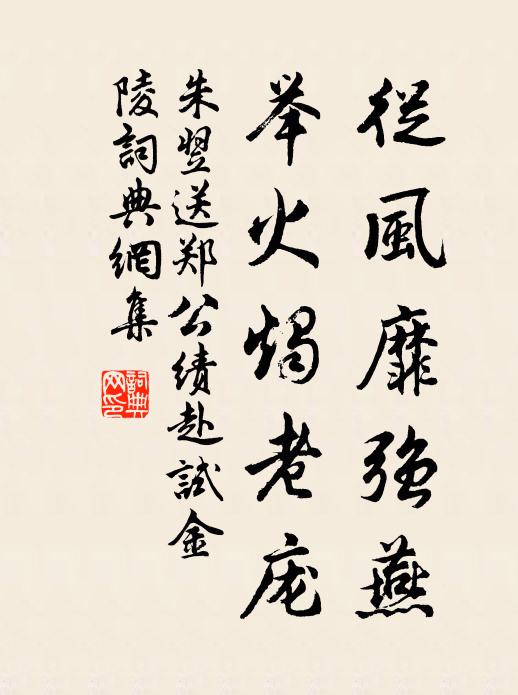 從風靡強燕
举火燭老庞
朱翌送郑公绩赴試金
陵詞典網集
詞典
网印